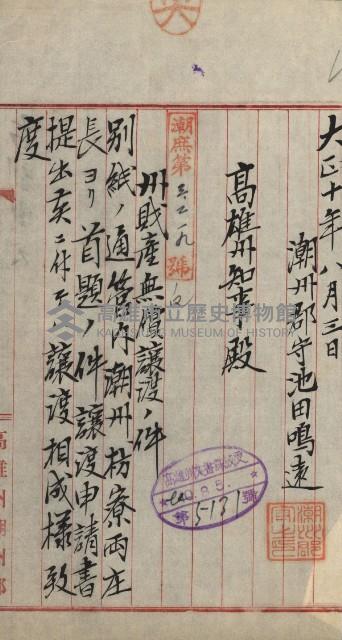 大正十年八月三日
潮州郡守池田鳴遠
高雄州知事殿
潮庶第三二一九號ノ
州財産無償讓渡ノ件
別紙ノ通管內潮州枋寮兩庄
長ヨリ首題ノ件讓渡申請書
提出候ニ付テハ讓渡相成樣致
度
高雄市立歷史博物館
KAOHSIUNG MUSEUM OF HISTORY
高雄州文書課收受
10.8.5.
第5131號
潮州郡守之印
高雄州潮州郡